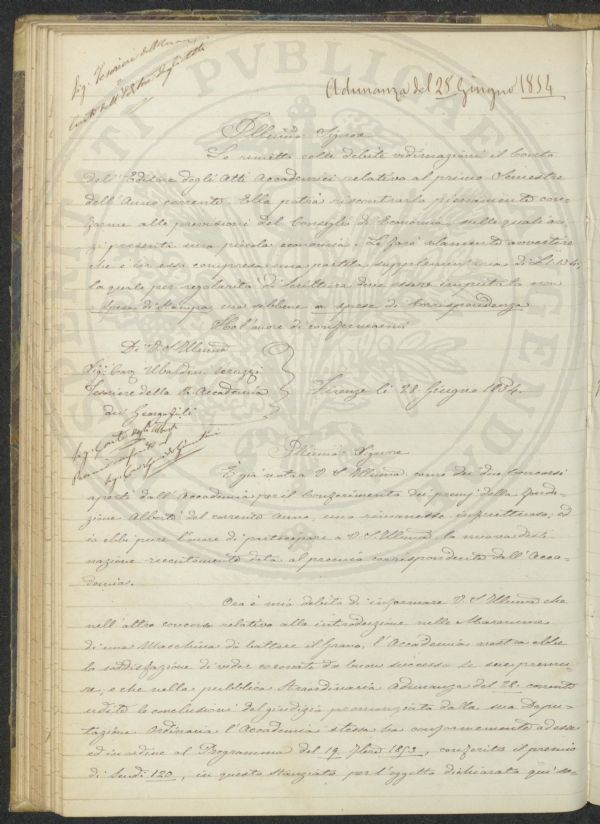 Sig. Tesoriere dell'Accad.
Conto dell'Editore degli Atti
Adunanza del 28 Giugno 1854
Illmo Signore
Le rimetto colle debite vidimazioni il Conto
dell'Editore degli Atti Accademici relativo al primo Semestre
dell'Anno corrente. Ella potrà riscontrarlo pienamente con-
forme alle previsioni del Consiglio di Economia, sulle quali an-
zi presenta una piccola economia. Le farò solamente avvertire
che è in esso compresa una partita supplementaria di
la quale per regolarità di scrittura deve essere imputata non
a spese di Stampa, ma sebbene a spese di Corrispondenza
Ho l'onore di confermarmi
Di V. S. Illma
Sig. Cav. Ubaldino Peruzzi
Tesoriere della R. Accademia
dei Georgofili
Firenze li 28 Giugno 1854.
Illmo Signore
È già noto a V. S. Illma come dei due Concorsi
aperti dall'Accademia per il Conferimento dei premj della Fonda-
zione Alberti del corrente Anno, uno rimanesse infruttuoso, ed
io ebbi pure l'onore di partecipare a V. S. Illma la nuova desti-
nazione recentemente data al premio corrispondente dall'Acca-
demia.
Ora è mio debito di informare V. S. Illma che
nell'altro concorso relativo alla introduzione nelle Maremme
di una Macchina da battere il Grano, l'Accademia nostra ebbe
la soddisfazione di veder coronate da buon successo le sue premu-
re, e che nella pubblica Straordinaria Adunanza del 28 corrente
udite le conclusioni del giudizio pronunziato dalla sua Depu-
tazione Ordinaria l'Accademia stessa ha conformemente ad esse
ed in ordine al Programma del 19 7bre 1853, conferito il premio
di Scudi 120, in questo Stanziato per l'oggetto dichiarato qui so-